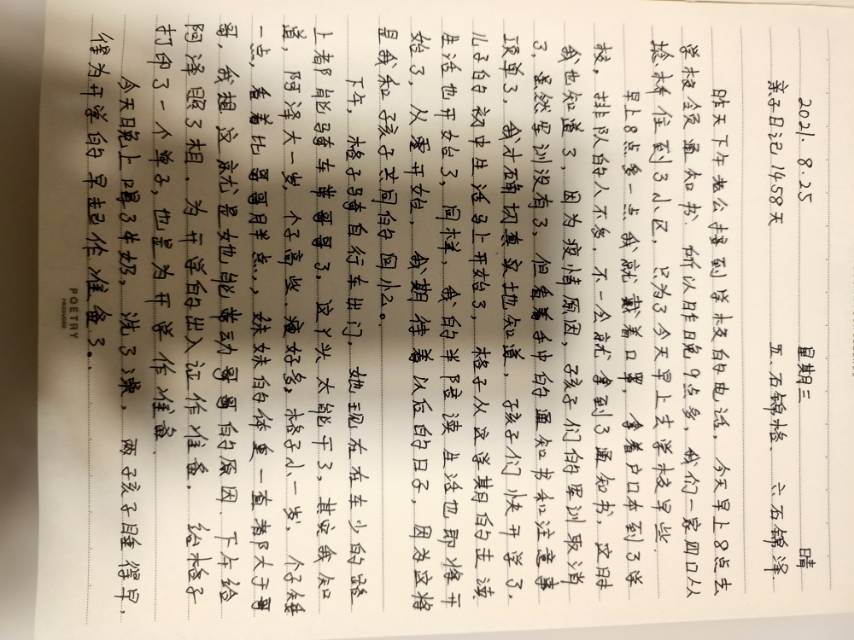 2021. 8.25 星期三 晴
亲子日记1458天 五、石锦格、六石锦泽
昨天下午老公接到学校的电话，今天早上8点去
学校领通知书，所以昨晚9点多，我们一家四口从
榆林住到了小区，只为了今天早上去学校早些。
早上8点多一点我就戴着口罩，拿着户口本到了学
校，排队的人不多，不一会就拿到了通知书，这时
我也知道了，因为疫情原因，孩子们的军训取消
了，虽然军训没有了，但看着手中的通知书和注意事
项单了，我才确切真实地知道，孩子们快开学了，
儿子的初中生活马上开始了，格子从这学期的走读
生活也开始了，同样，我的半陪读生活也即将开
始了，从爱开始，我期待着以后的日子，因为这将
是我和孩子共同的回忆。
下午，格子骑自行车出门，她现在在车少的路
上都能骑车带哥哥了，这丫头太能干了，其实我知
道，阿泽大一岁，个子高些，瘦好多，格子小一岁，个子矮
一点，看着比哥哥胖点，妹妹的体重一直都大于哥
哥，我想这就是她能带动哥哥的原因，下午给
阿泽照了相，为开学的出入证作准备，给格子
打印了一个单子，也是为开学作准备。
今天晚上喝了牛奶，洗了澡，两孩子睡得早，
作为开学的早起作准备了。
POETRY